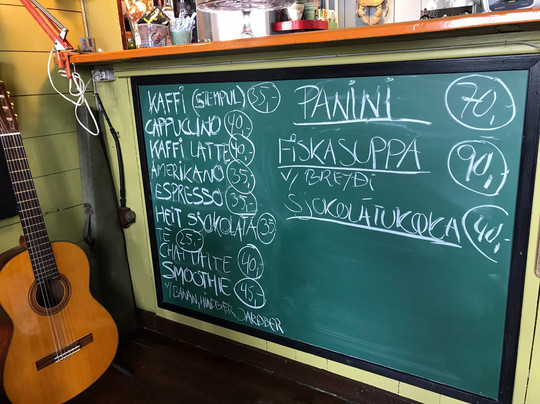 KAFFI (STEMPUL) 35,-
CAPPUCCINO 40,-
KAFFI LATTE 40,-
AMERIKANO 35,-
ESPRESSO 35,-
HEIT SJOKOLÁTA 35
TE 25,-
CHAI LATTE 40,-
SMOOTHIE 45,-
V/ BANAN, HINDBER JARÐBER
PANINI 70,-
FISKASUPPA 90,-
V/ BREYÐI
SJOKOLÁTUKAKA 40,-